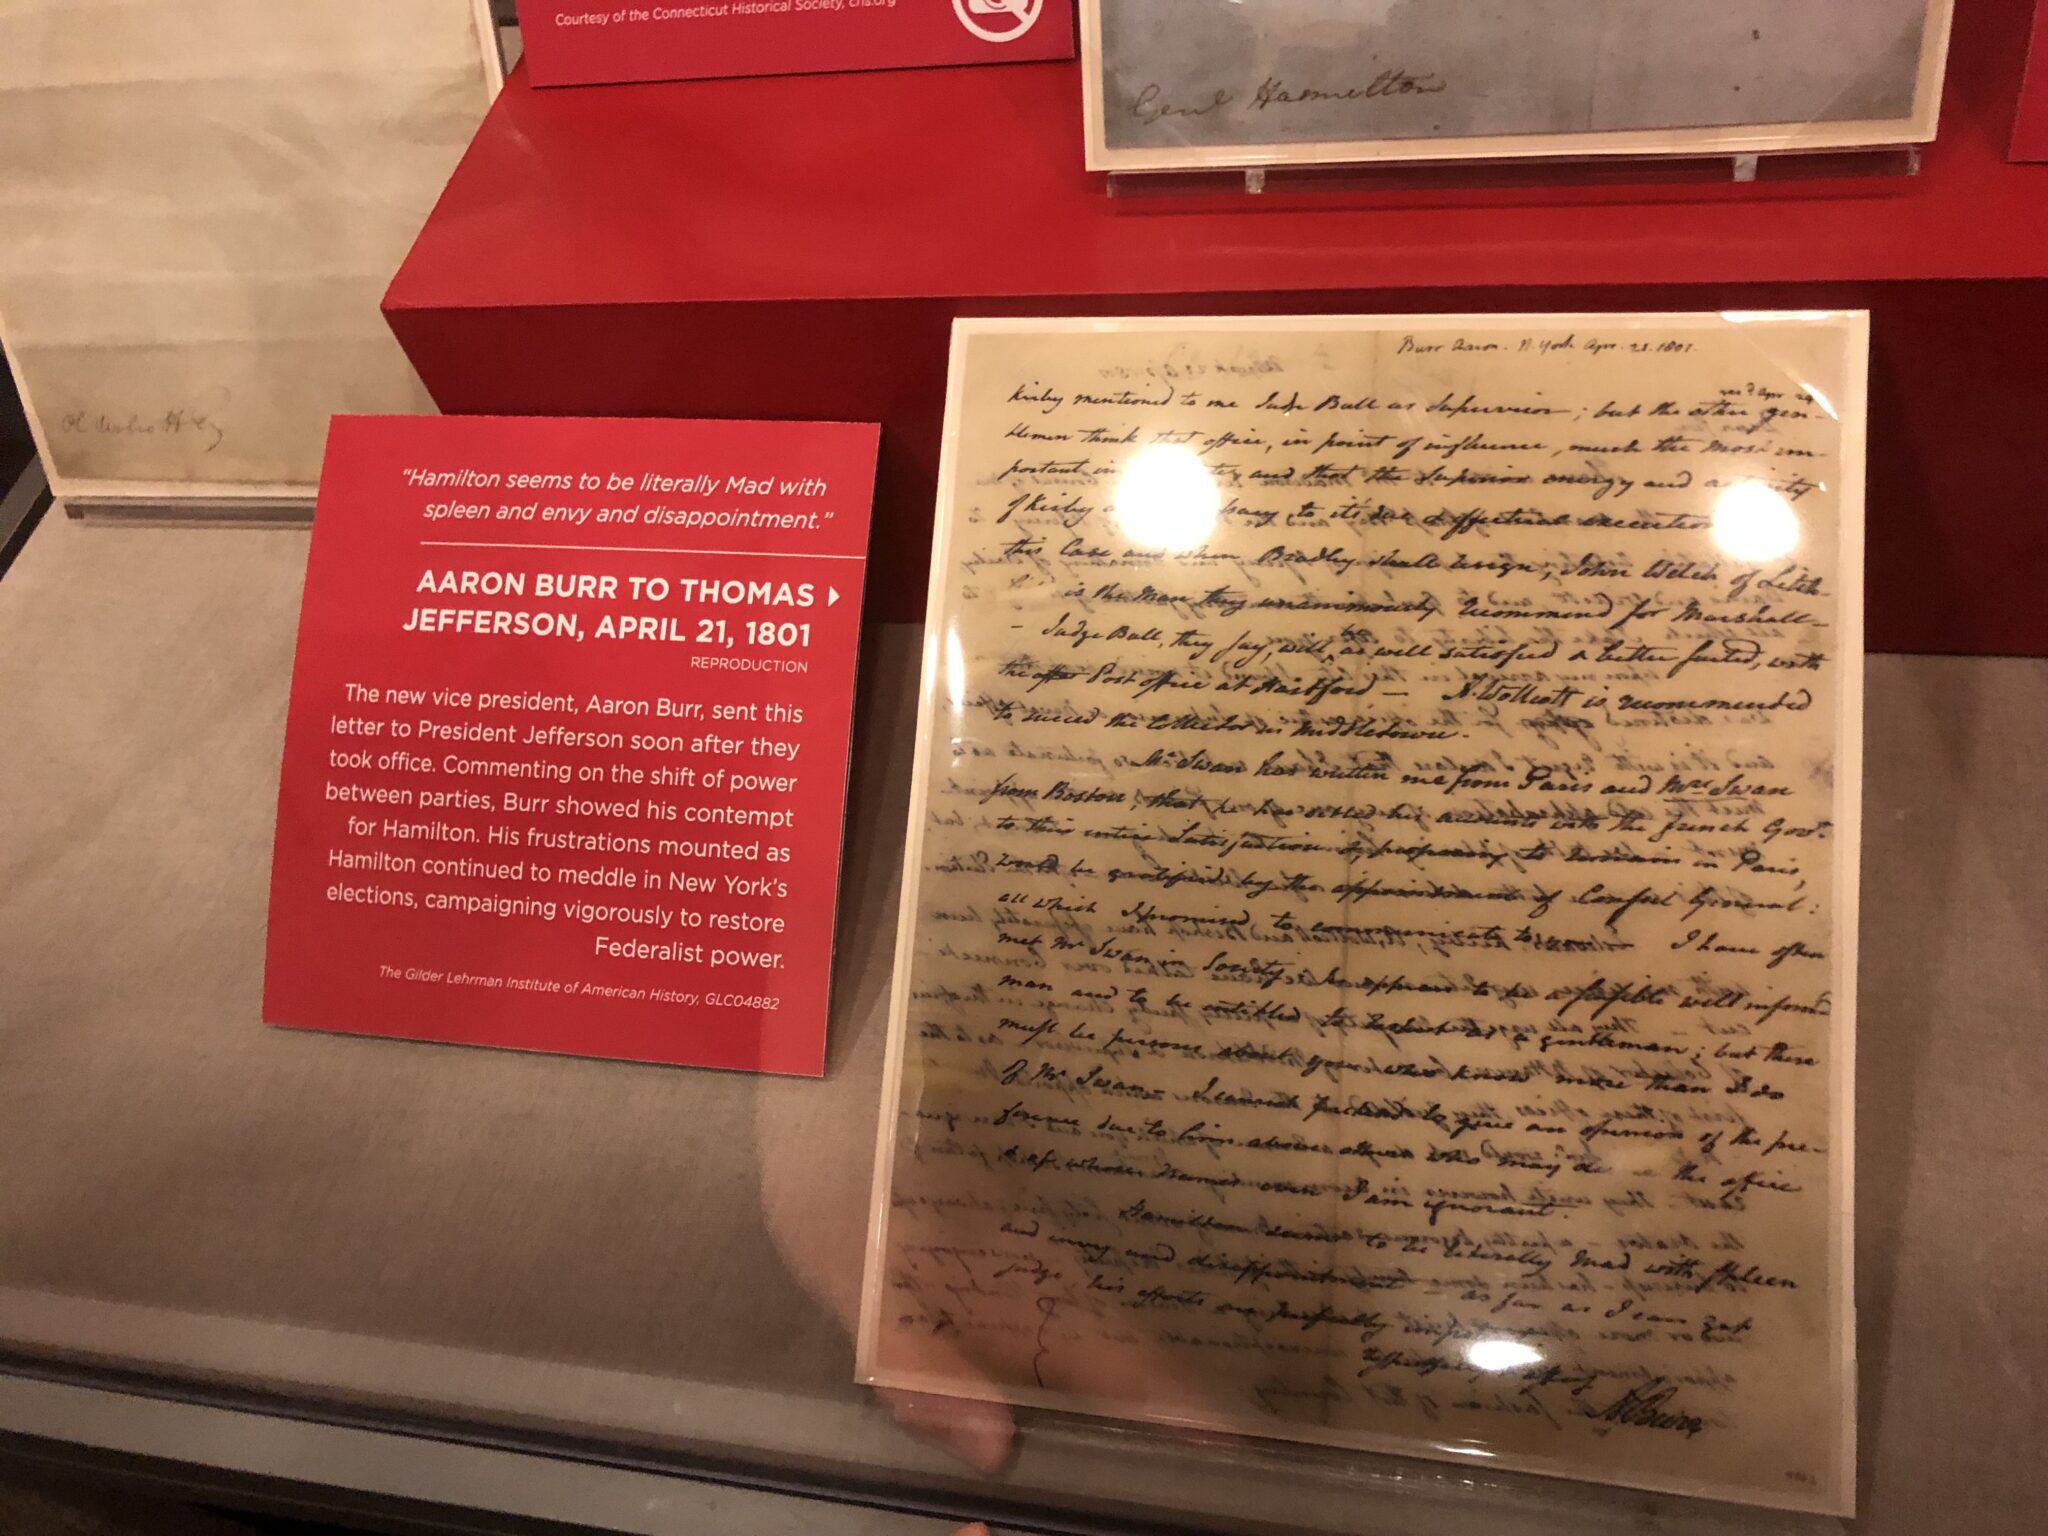 Courtesy of the Connecticut Historical Society, chs.org
Genl Hamilton
"Hamilton seems to be literally Mad with
spleen and envy and disappointment."
AARON BURR TO THOMAS
JEFFERSON, APRIL 21, 1801
REPRODUCTION
The new vice president, Aaron Burr, sent this
letter to President Jefferson soon after they
took office. Commenting on the shift of power
between parties, Burr showed his contempt
for Hamilton. His frustrations mounted as
Hamilton continued to meddle in New York's
elections, campaigning vigorously to restore
Federalist power.
The Gilder Lehrman Institute of American History, GLC04882
Burr Aaron. N. York Apr. 21. 1801.
Kirby mentioned to me Judge Bull as Supervisor; but the other gen-
tlemen think that office, in point of influence, much the most im-
portant in and that the Superior energy and activity
of Kirby to it's due & effectual execution
this Case and when Bradley shall resign, John Welch of Litch-
is the Man they unanimously recommend for Marshall-
- Judge Bull, they say, will be as well satisfied & better suited, with
the Post office at Hartford - A. Wollcott is recommended
to succeed the Collector in Middletown.
Mr Swan has written me from Paris and Mrs Swan
from Boston, that he has settled his accounts with the french Govt.
to their entire Satisfaction & proposing to remain in Paris,
would be gratified by the appointment of Consul General:
all which I promised to communicate to you - I have often
met Mr Swan in Society he appears to be a sensible well informd
man and to be entitled to respect as a gentleman; but there
must be persons about you who know more than I do
of Mr Swan - I cannot pretend to give an opinion of the pre-
ference due to him above others who may de the office
& of whose Names even I am ignorant.
Hamilton seems to be literally Mad with spleen
and envy and disappointment - as far as I can yet
judge, his efforts are perfectly impotent
A Burr